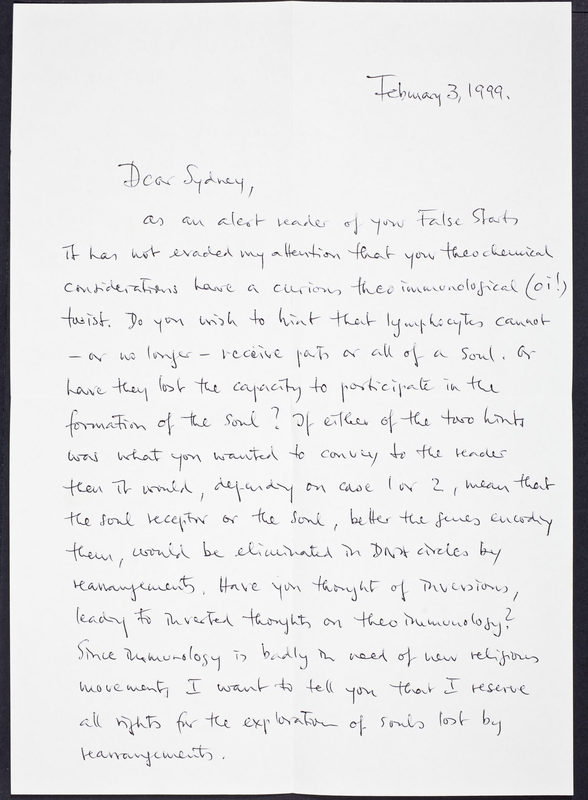 February 3, 1999.
Dear Sydney,
as an alert reader of your False Starts
it has not evaded my attention that your theochemical
considerations have a curious theoimmunological (oi!)
twist. Do you wish to hint that lymphocytes cannot
– or no longer – receive parts or all of a soul. Or
have they lost the capacity to participate in the
formation of the soul? If either of the two hints
was what you wanted to convey to the reader
then it would, depending on case 1 or 2, mean that
the soul receptor or the soul, better the genes encoding
them, would be eliminated in DNA circles by
rearrangements. Have you thought of inversions,
leading to inverted thoughts on theoimmunology?
Since immunology is badly in need of new religious
movements, I want to tell you that I reserve
all rights for the exploration of souls lost by
rearrangements.